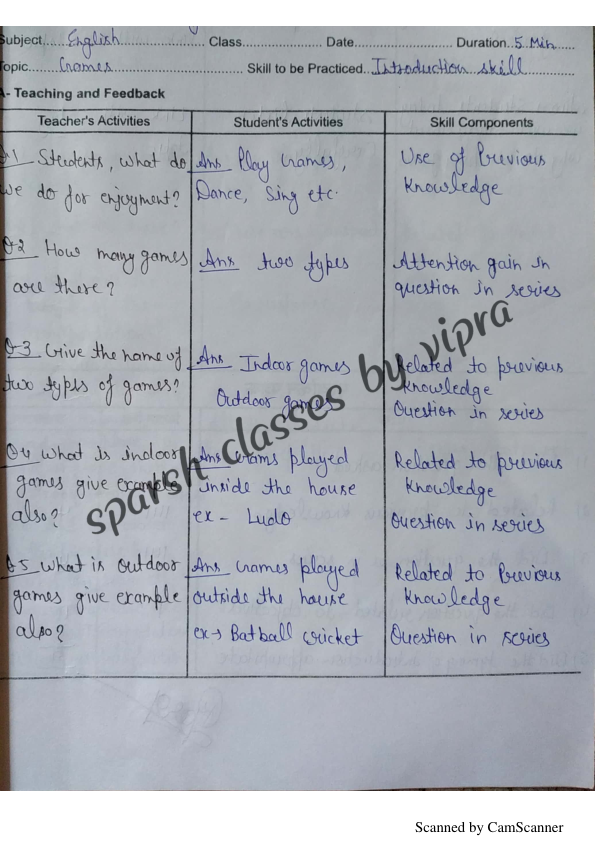 Subject.....English..................... Class.................... Date......................... Duration..5 Min......
Topic.........Games.................................. Skill to be Practiced..Introduction skill............
A- Teaching and Feedback
Teacher's Activities
Student's Activities
Skill Components
Q1 Students, what do
we do for enjoyment?
Ans Play Games,
Dance, Sing etc.
Use of Previous
Knowledge
Q2 How many games
are there?
Ans two types
Attention gain in
question in series
Q3 Give the name of
two types of games?
Ans Indoor games
Outdoor games
Related to previous
Knowledge
Question in series
Q4 What is indoor
games give example
also?
Ans Grams played
inside the house
ex - Ludo
Related to previous
Knowledge
Question in series
Q5 What is outdoor
games give example
also?
Ans Games played
outside the house
ex→ Batball cricket
Related to Previous
Knowledge
Question in series
sparsh classes by vipra
Scanned by CamScanner